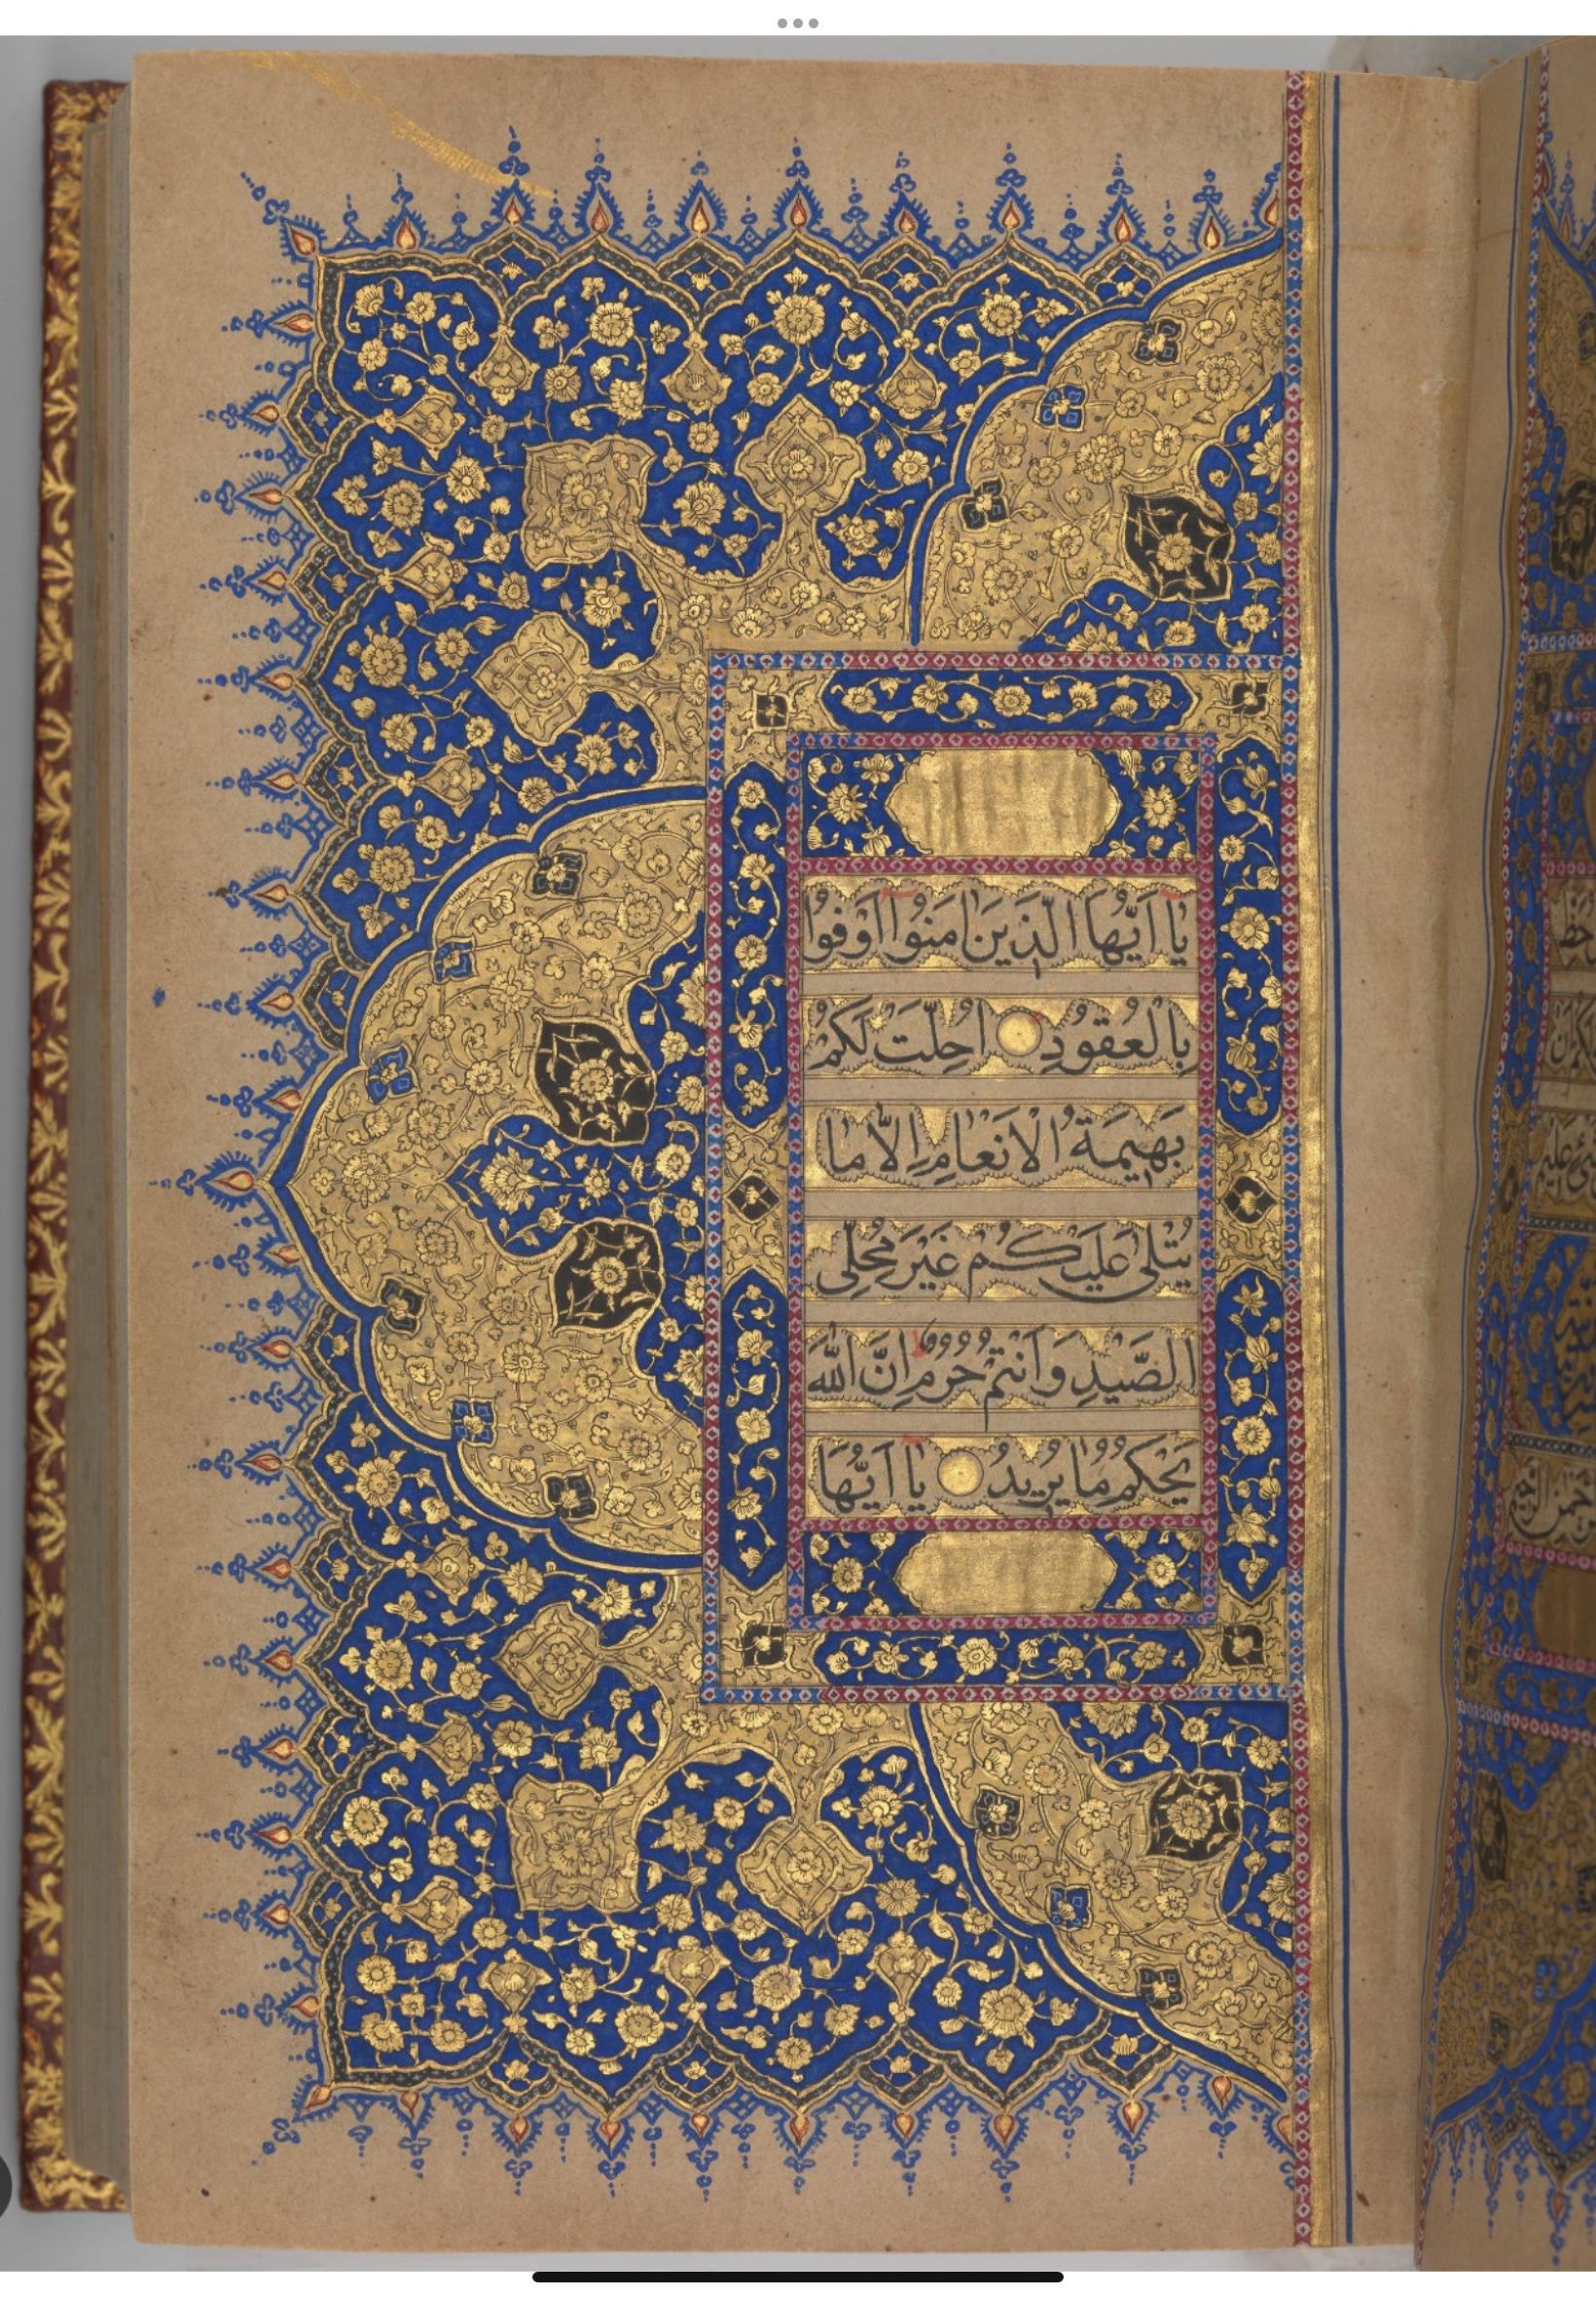 يٰا اَيُّهَا الَّذينَ اٰمَنُوا اَوْفُوا
بِالْعُقُودِ اُحِلَّتْ لَكُمْ
بَهيمَةُ الْاَنْعٰامِ اِلّاٰ مٰا
يُتْلىٰ عَلَيْكُمْ غَيْرَ مُحِلِّى
الصَّيْدِ وَاَنْتُمْ حُرُمٌ اِنَّ اللّٰهَ
يَحْكُمُ مٰا يُريدُ يٰا اَيُّهَا